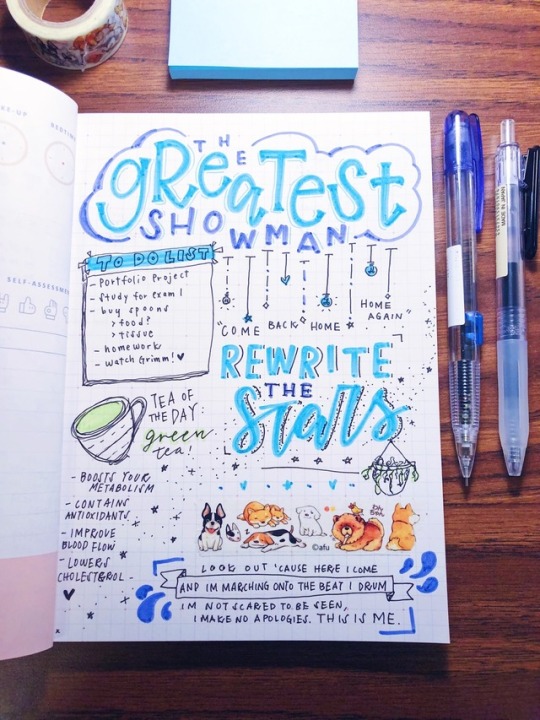 THE
GREATEST
SHOWMAN
TO DO LIST
- PORTFOLIO PROJECT
- study for exam 1
- buy spoons
> food?
> tissue
- homework
- watch Grimm! ♥
"COME BACK HOME
HOME AGAIN"
REWRITE
THE
Stars
TEA OF
THE DAY:
green
tea!
- BOOSTS YOUR
METABOLISM
- CONTAINS
ANTIOXIDANTS
- IMPROVE
BLOOD FLOW
- LOWERS
CHOLESTEROL -
©afu
LOOK OUT 'CAUSE HERE I COME
AND IM MARCHING ONTO THE BEAT I DRUM
IM NOT SCARED TO BE SEEN,
I MAKE NO APOLOGIES. THIS IS ME.
SELF-ASSESSMENT
MADE IN JAPAN